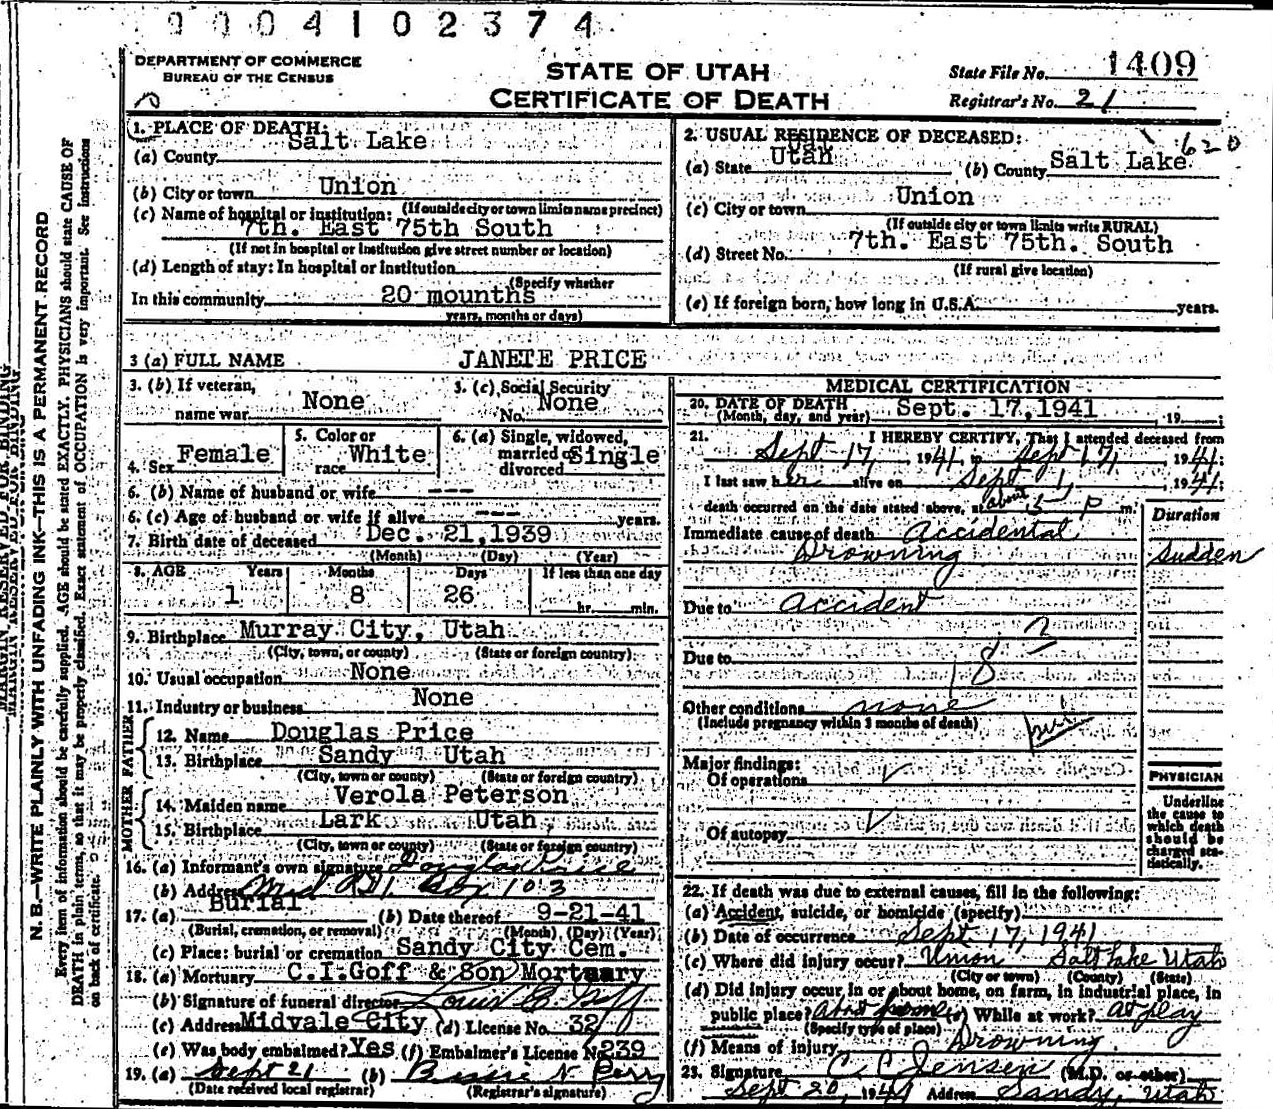 9 0 0 4 1 0 2 3 7 4
DEPARTMENT OF COMMERCE
BUREAU OF THE CENSUS
STATE OF UTAH
CERTIFICATE OF DEATH
State File No. 1409
Registrar's No. 21
1. PLACE OF DEATH:
(a) County Salt Lake
(b) City or town Union
(If outside city or town limits name precinct)
(c) Name of hospital or institution:
7th. East 75th South
(If not in hospital or institution give street number or location)
(d) Length of stay: In hospital or institution
(Specify whether
In this community 20 mounths
years, months or days)
2. USUAL RESIDENCE OF DECEASED:
620
(a) State Utah (b) County Salt Lake
(c) City or town Union
(If outside city or town limits write RURAL)
(d) Street No. 7th. East 75th. South
(If rural give location)
(e) If foreign born, how long in U.S.A. years.
3 (a) FULL NAME JANETE PRICE
3. (b) If veteran, name war None
3. (c) Social Security No. None
4. Sex Female
5. Color or race White
6. (a) Single, widowed, married or divorced Single
6. (b) Name of husband or wife ---
6. (c) Age of husband or wife if alive --- years.
7. Birth date of deceased Dec. 21,1939
(Month) (Day) (Year)
8. AGE Years Months Days If less than one day
1 8 26 hr. min.
9. Birthplace Murray City, Utah
(City, town, or county) (State or foreign country)
10. Usual occupation None
11. Industry or business None
FATHER
12. Name Douglas Price
13. Birthplace Sandy Utah
(City, town or county) (State or foreign country)
MOTHER
14. Maiden name Verola Peterson
15. Birthplace Lark Utah
(City, town or county) (State or foreign country)
16. (a) Informant's own signature Douglas Price
(b) Address Mid RD1 Box 103
17. (a) Burial (b) Date thereof 9-21-41
(Burial, cremation, or removal) (Month) (Day) (Year)
(c) Place: burial or cremation Sandy City Cem.
18. (a) Mortuary C.I.Goff & Son Mortuary
(b) Signature of funeral director Louis B. Goff
(c) Address Midvale City (d) License No. 32
(e) Was body embalmed? Yes (f) Embalmer's License No. 239
19. (a) Sept 21 (b) Bessie N Berry
(Date received local registrar) (Registrar's signature)
MEDICAL CERTIFICATION
20. DATE OF DEATH
(Month, day, and year) Sept. 17,1941 19
21. I HEREBY CERTIFY, That I attended deceased from
Sept 17, 1941, to Sept 17, 1941;
I last saw her alive on Sept 1, 1941;
death occurred on the date stated above, at about 5 P m.
Duration
Immediate cause of death Accidental
Drowning Sudden
Due to Accident
Due to
182
Other conditions none
(Include pregnancy within 3 months of death)
Major findings:
Of operations
Of autopsy
PHYSICIAN
Underline
the cause to
which death
should be
charged sta-
tistically.
22. If death was due to external causes, fill in the following:
(a) Accident, suicide, or homicide (specify)
(b) Date of occurrence Sept. 17, 1941
(c) Where did injury occur? Union Salt Lake Utah
(City or town) (County) (State)
(d) Did injury occur in or about home, on farm, in industrial place, in
public place? About home (e) While at work? At play
(Specify type of place)
(f) Means of injury Drowning.
23. Signature C. C. Jensen (M.D. or other)
Sept 20, 1941 Address Sandy, Utah
MARGIN RESERVED FOR BINDING
N. B.—WRITE PLAINLY WITH UNFADING INK—THIS IS A PERMANENT RECORD
Every item of information should be carefully supplied. AGE should be stated EXACTLY. PHYSICIANS should state CAUSE OF
DEATH in plain terms, so that it may be properly classified. Exact statement of OCCUPATION is very important. See instructions
on back of certificate.